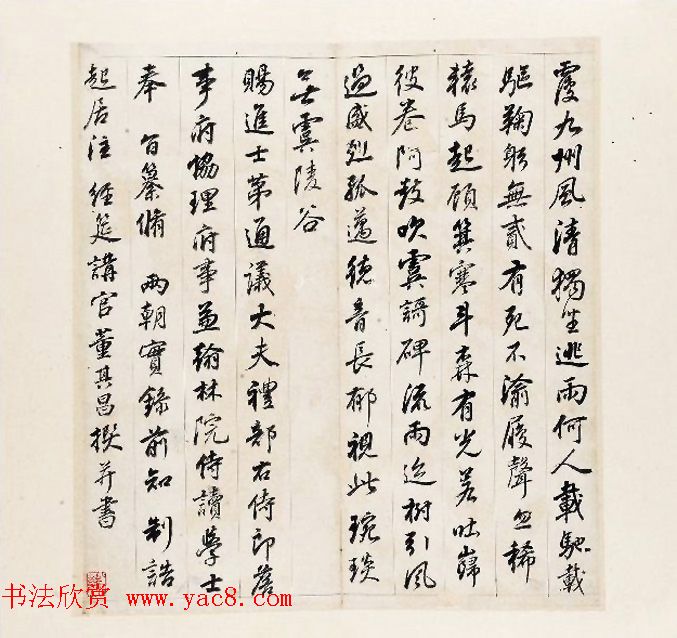 九州風清獨坐逃雨何人載馳載
驅鞠躬無貳有死不渝履聲忽稀
轅馬起顧箕寒斗森有光若吐巋
彼卷阿鼓吹虞謌碑流雨迄樹引風
過盛烈孤邁德音長郁視此琬琰
無虞陵谷
賜進士第通議大夫禮部右侍郎詹
事府協理府事兼翰林院侍讀學士
奉 旨纂脩 兩朝實錄前知 制誥
起居注 經筵講官董其昌撰并書
书法欣赏 www.yac8.com